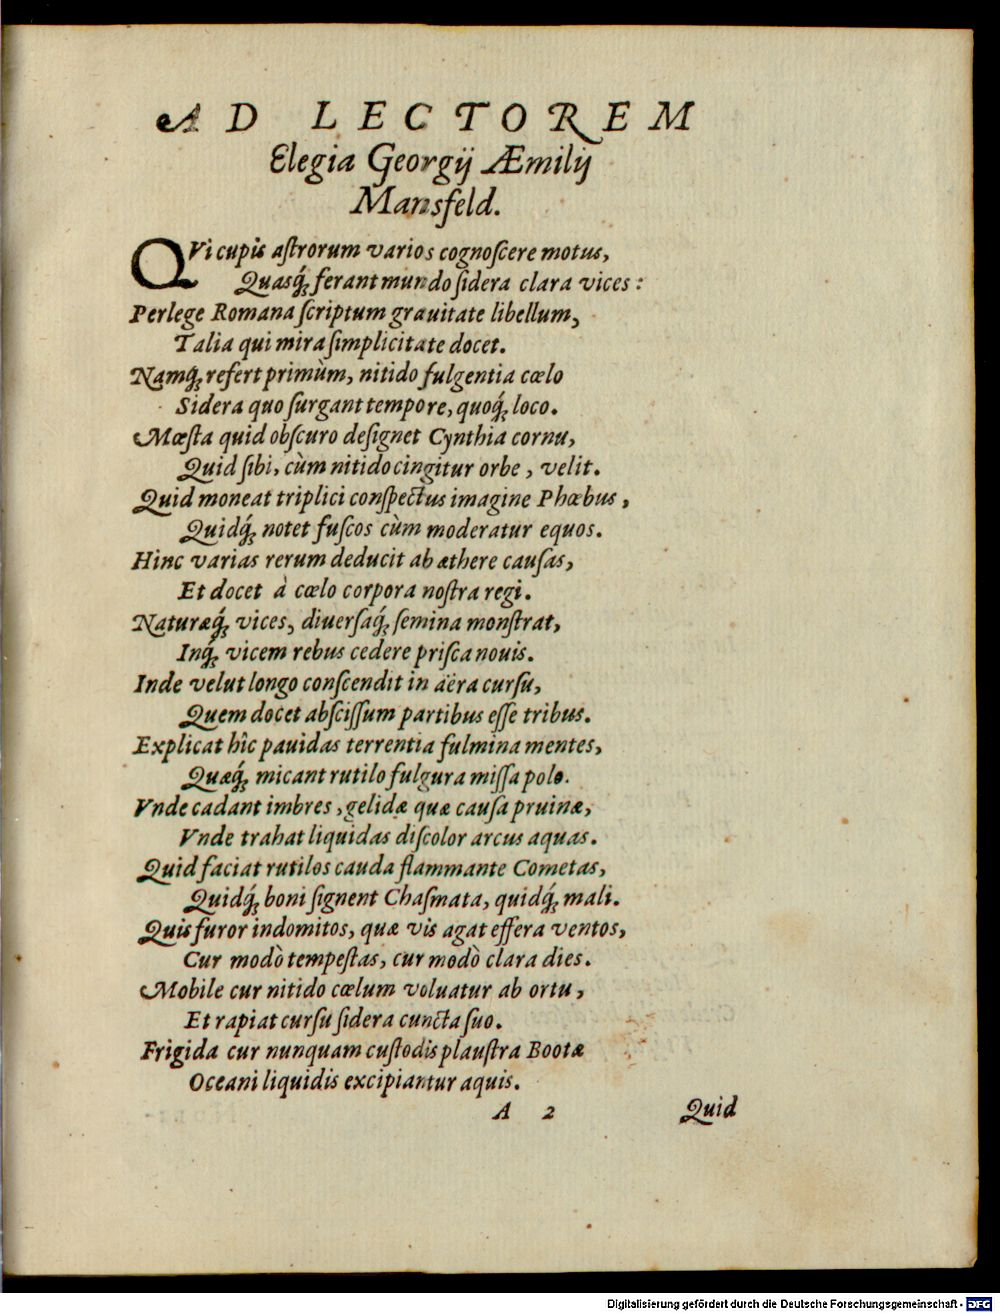 AD LECTOREM
Elegia Georgij Æmilij
Mansfeld.
QVi cupis aſtrorum varios cognoſcere motus,
Quasq́ꝫ ferant mundo ſidera clara vices:
Perlege Romana ſcriptum grauitate libellum,
Talia qui mira ſimplicitate docet.
Namq́ꝫ refert primùm, nitido fulgentia cœlo
Sidera quo ſurgant tempore, quoq́ꝫ loco.
Mœſta quid obſcuro deſignet Cynthia cornu,
Quid ſibi, cùm nitido cingitur orbe, velit.
Quid moneat triplici conſpectus imagine Phœbus,
Quidq́ꝫ notet fuſcos cùm moderatur equos.
Hinc varias rerum deducit ab æthere cauſas,
Et docet à cœlo corpora noſtra regi.
Naturæq́ꝫ vices, diuerſaq́ꝫ ſemina monſtrat,
Inq́ꝫ vicem rebus cedere priſca nouis.
Inde velut longo conſcendit in aëra curſu,
Quem docet abſciſſum partibus eſſe tribus.
Explicat hîc pauidas terrentia fulmina mentes,
Quæq́ꝫ micant rutilo fulgura miſſa polo.
Vnde cadant imbres, gelidæ quæ cauſa pruinæ,
Vnde trahat liquidas diſcolor arcus aquas.
Quid faciat rutilos cauda flammante Cometas,
Quidq́ꝫ boni ſignent Chaſmata, quidq́ꝫ mali.
Quis furor indomitos, quæ vis agat effera ventos,
Cur modò tempeſtas, cur modò clara dies.
Mobile cur nitido cœlum voluatur ab ortu,
Et rapiat curſu ſidera cuncta ſuo.
Frigida cur nunquam cuſtodis plauſtra Bootæ
Oceani liquidis excipiantur aquis.
A 2 Quid
Digitalisierung gefördert durch die Deutsche Forschungsgemeinschaft - DFG